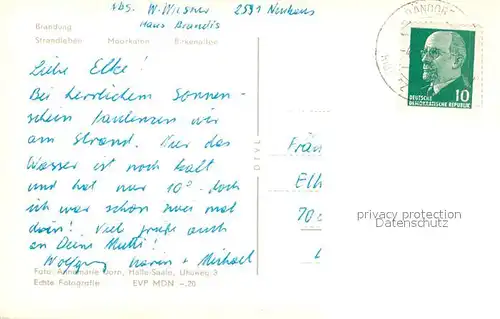 abg. W. Wiesner 2591 Neuhaus
Haus Brandis
Brandung
Strandleben Moorkaten Birkenallee
Liebe Elke!
Bei herrlichem Sonnen-
schein faulenzen wir
am Strand. Nur das
Wasser ist noch kalt
und hat nur 10° doch
ich war schon zwei mal
drin! Viel grüße auch
an Deine Mutti!
Wolfgang Karen + Michael
Foto: Annemarie Dorn, Halle-Saale, Uhuweg 3
Echte Fotografie EVP MDN -.20
DTVL
Frän
Elk
70
DEUTSCHE
DEMOKRATISCHE REPUBLIK 10
privacy protection
Datenschutz